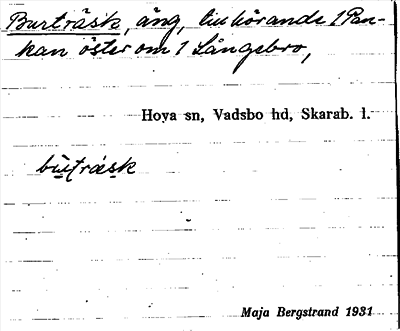 Burträsk, äng, tillhörande 1 Pan-
kan öster om 1 Långebro,
Hova sn, Vadsbo hd, Skarab. l.
Maja Bergstrand 1931